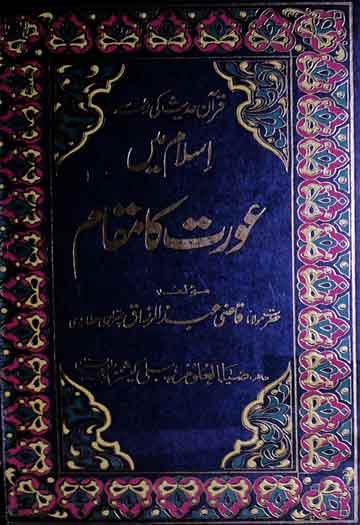 قرآن حدیث کی رو سے
اسلام میں
عورت کا مقام
مؤلف
حضرت مولانا قاضی عبدالرزاق
ضیاء العلوم پبلی کیشنز